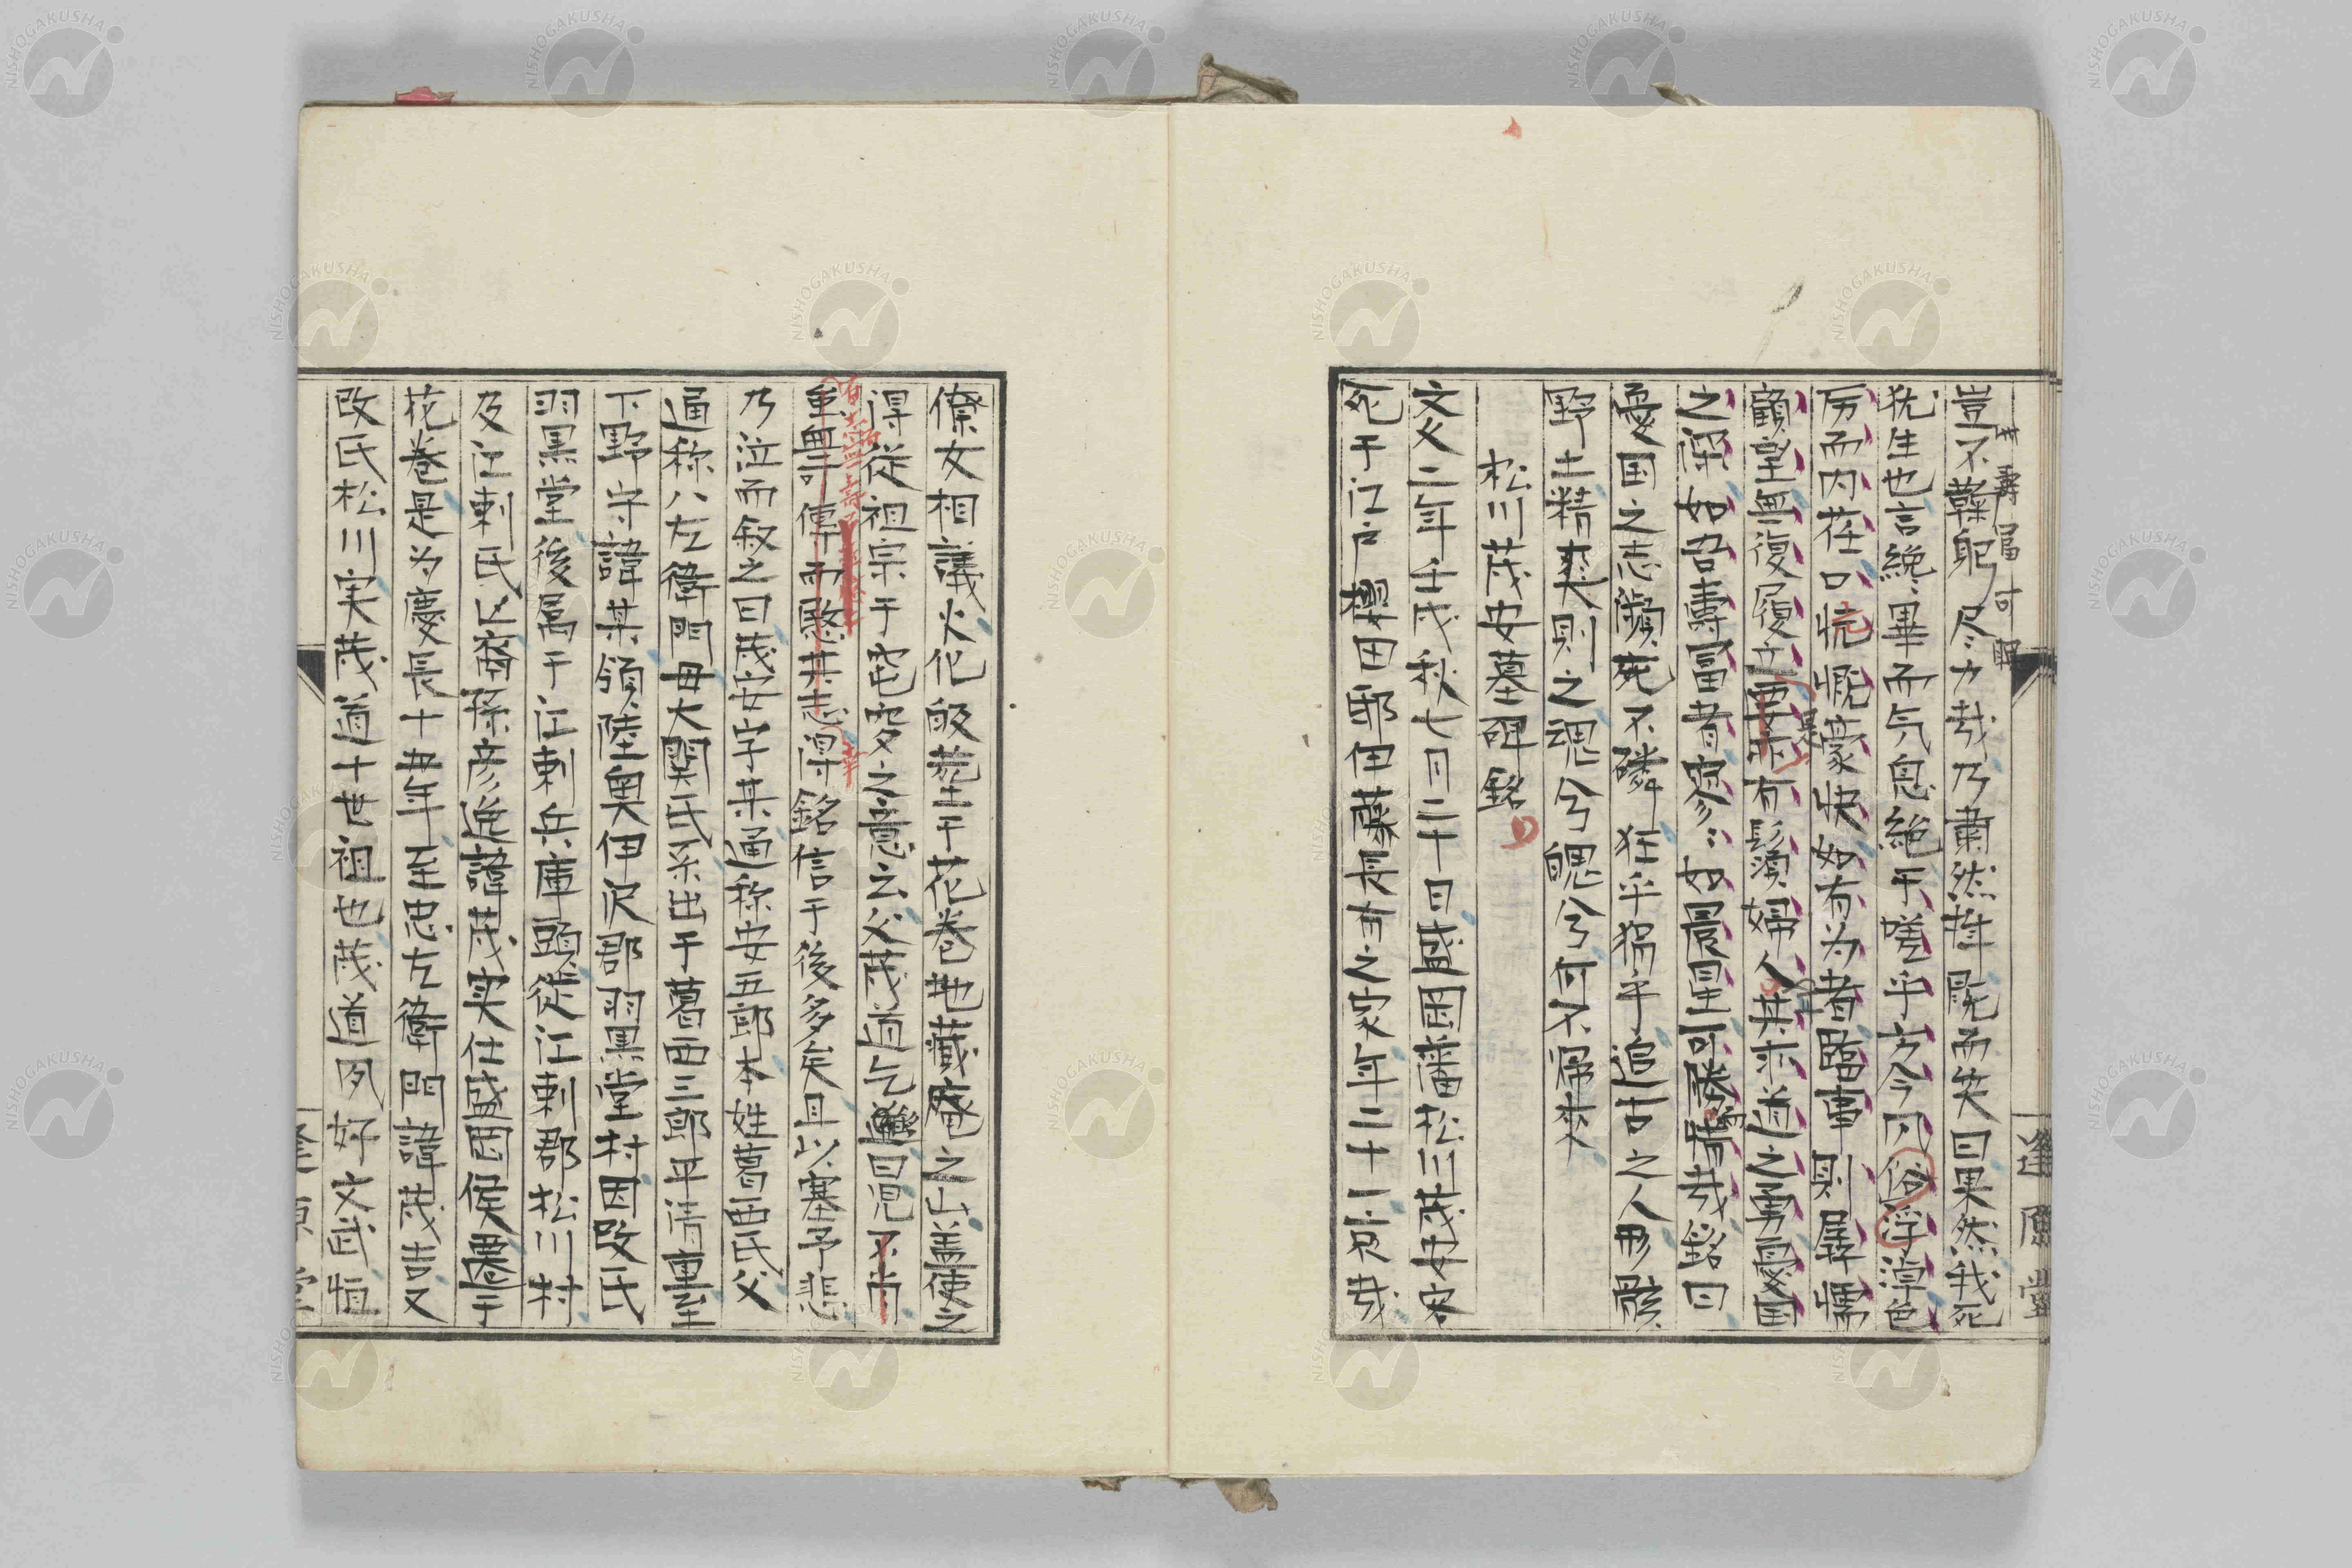 豈不鞠躬尽力哉乃粛然拱听而笑曰果然我死
犹生也言絶畢而气息絶于嗟乎方今風俗浮淖色
厉而内荏口慷慨豪快如有为者臨事則孱懦
顧望無復履立要所有鬚鬢婦人其求道之勇憂国
之深如吾壽冨者寥〻如晨星可勝惜哉銘曰
憂国之志瀕死不隣狂乎狷乎追古之人形骸
野土精爽則之魂兮魄兮何不帰来
松川茂安墓碑銘
文久二年壬戌秋七月三十日盛岡藩松川茂安客
死于江戸櫻田邸伊藤長有之家年二十二於哉
僚女相議火化皈葬于花巻地藏庵之山盖使之
得從祖宗于窀穸之意云父茂道乞曰児不肖
重無可傳而愍其志得銘信于後多矣且以塞予悲
乃泣而叙之曰茂安字某通称安五郎本姓葛西氏父
通称八左衛門母大関氏系出于葛西三郎平清重至
下野守諱某領陸奥伊沢郡羽黒堂村因改氏
羽黒堂後属于江刺兵庫頭従江刺郡松川村
及江刺氏亡裔孫彦進諱茂実仕盛岡侯遷于
花巻是为慶長十五年至忠左衛門諱茂吉又
改氏松川実茂道十世祖也茂道夙好文武恒
逢原堂